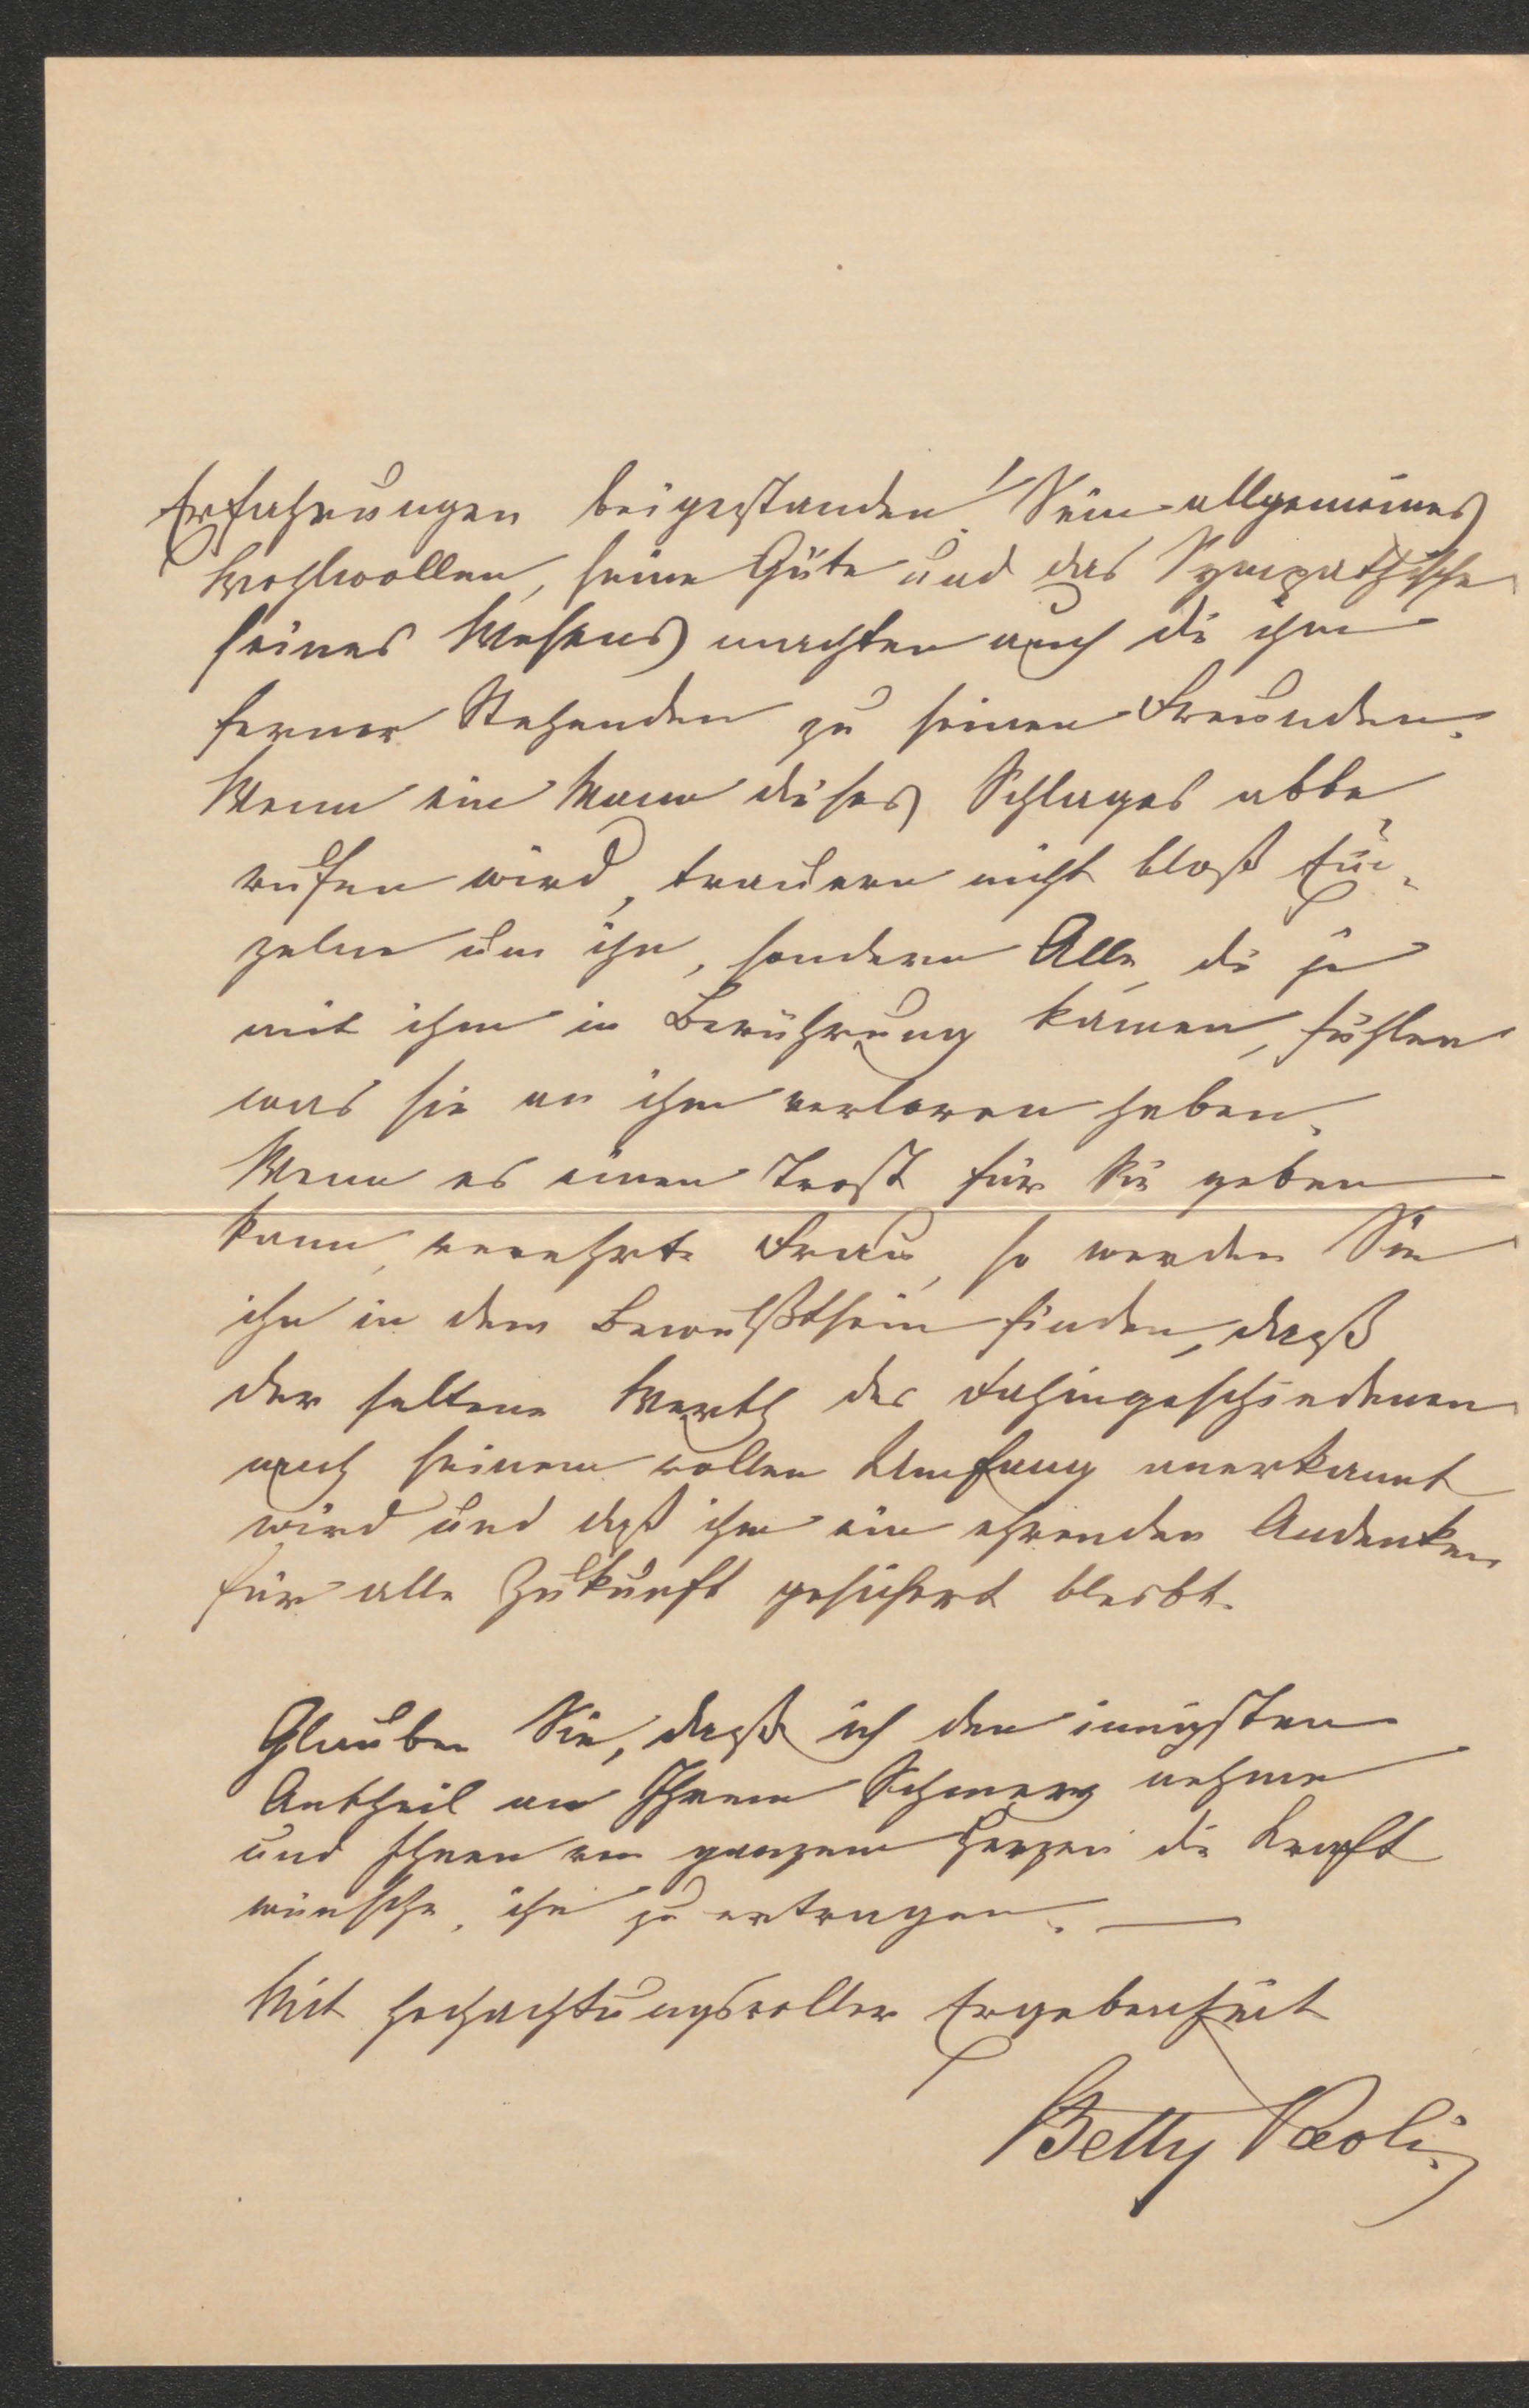 Erfahrungen beigestanden! Sein allgemeines
Wohlwollen, seine Güte und das Sympathische
seines Wesens machten auch die ihm
ferner Stehenden zu seinen Freunden.
Wenn ein Mann dieses Schlages abbe¬
rufen wird, trauern nicht bloß Ein¬
zelne um ihn, sondern Alle, die je
mit ihm in Berührung kamen, fühlen
was sie an ihm verloren haben.
Wenn es einen Trost für Sie geben
kann, verehrte Frau, so werden Sie
ihn in dem Bewußtsein finden, daß
der seltene Werth des Dahingeschiedenen
nach seinem vollen Umfang anerkannt
wird und daß ihm ein ehrendes Andenken
für alle Zukunft gesichert bleibt.
Glauben Sie, daß ich den innigsten
Antheil an Ihrem Schmerz nehme
und Ihnen von ganzem Herzen die Kraft
wünsche, ihn zu ertragen. —
Mit hochachtungsvoller Ergebenheit
Betty Paoli.